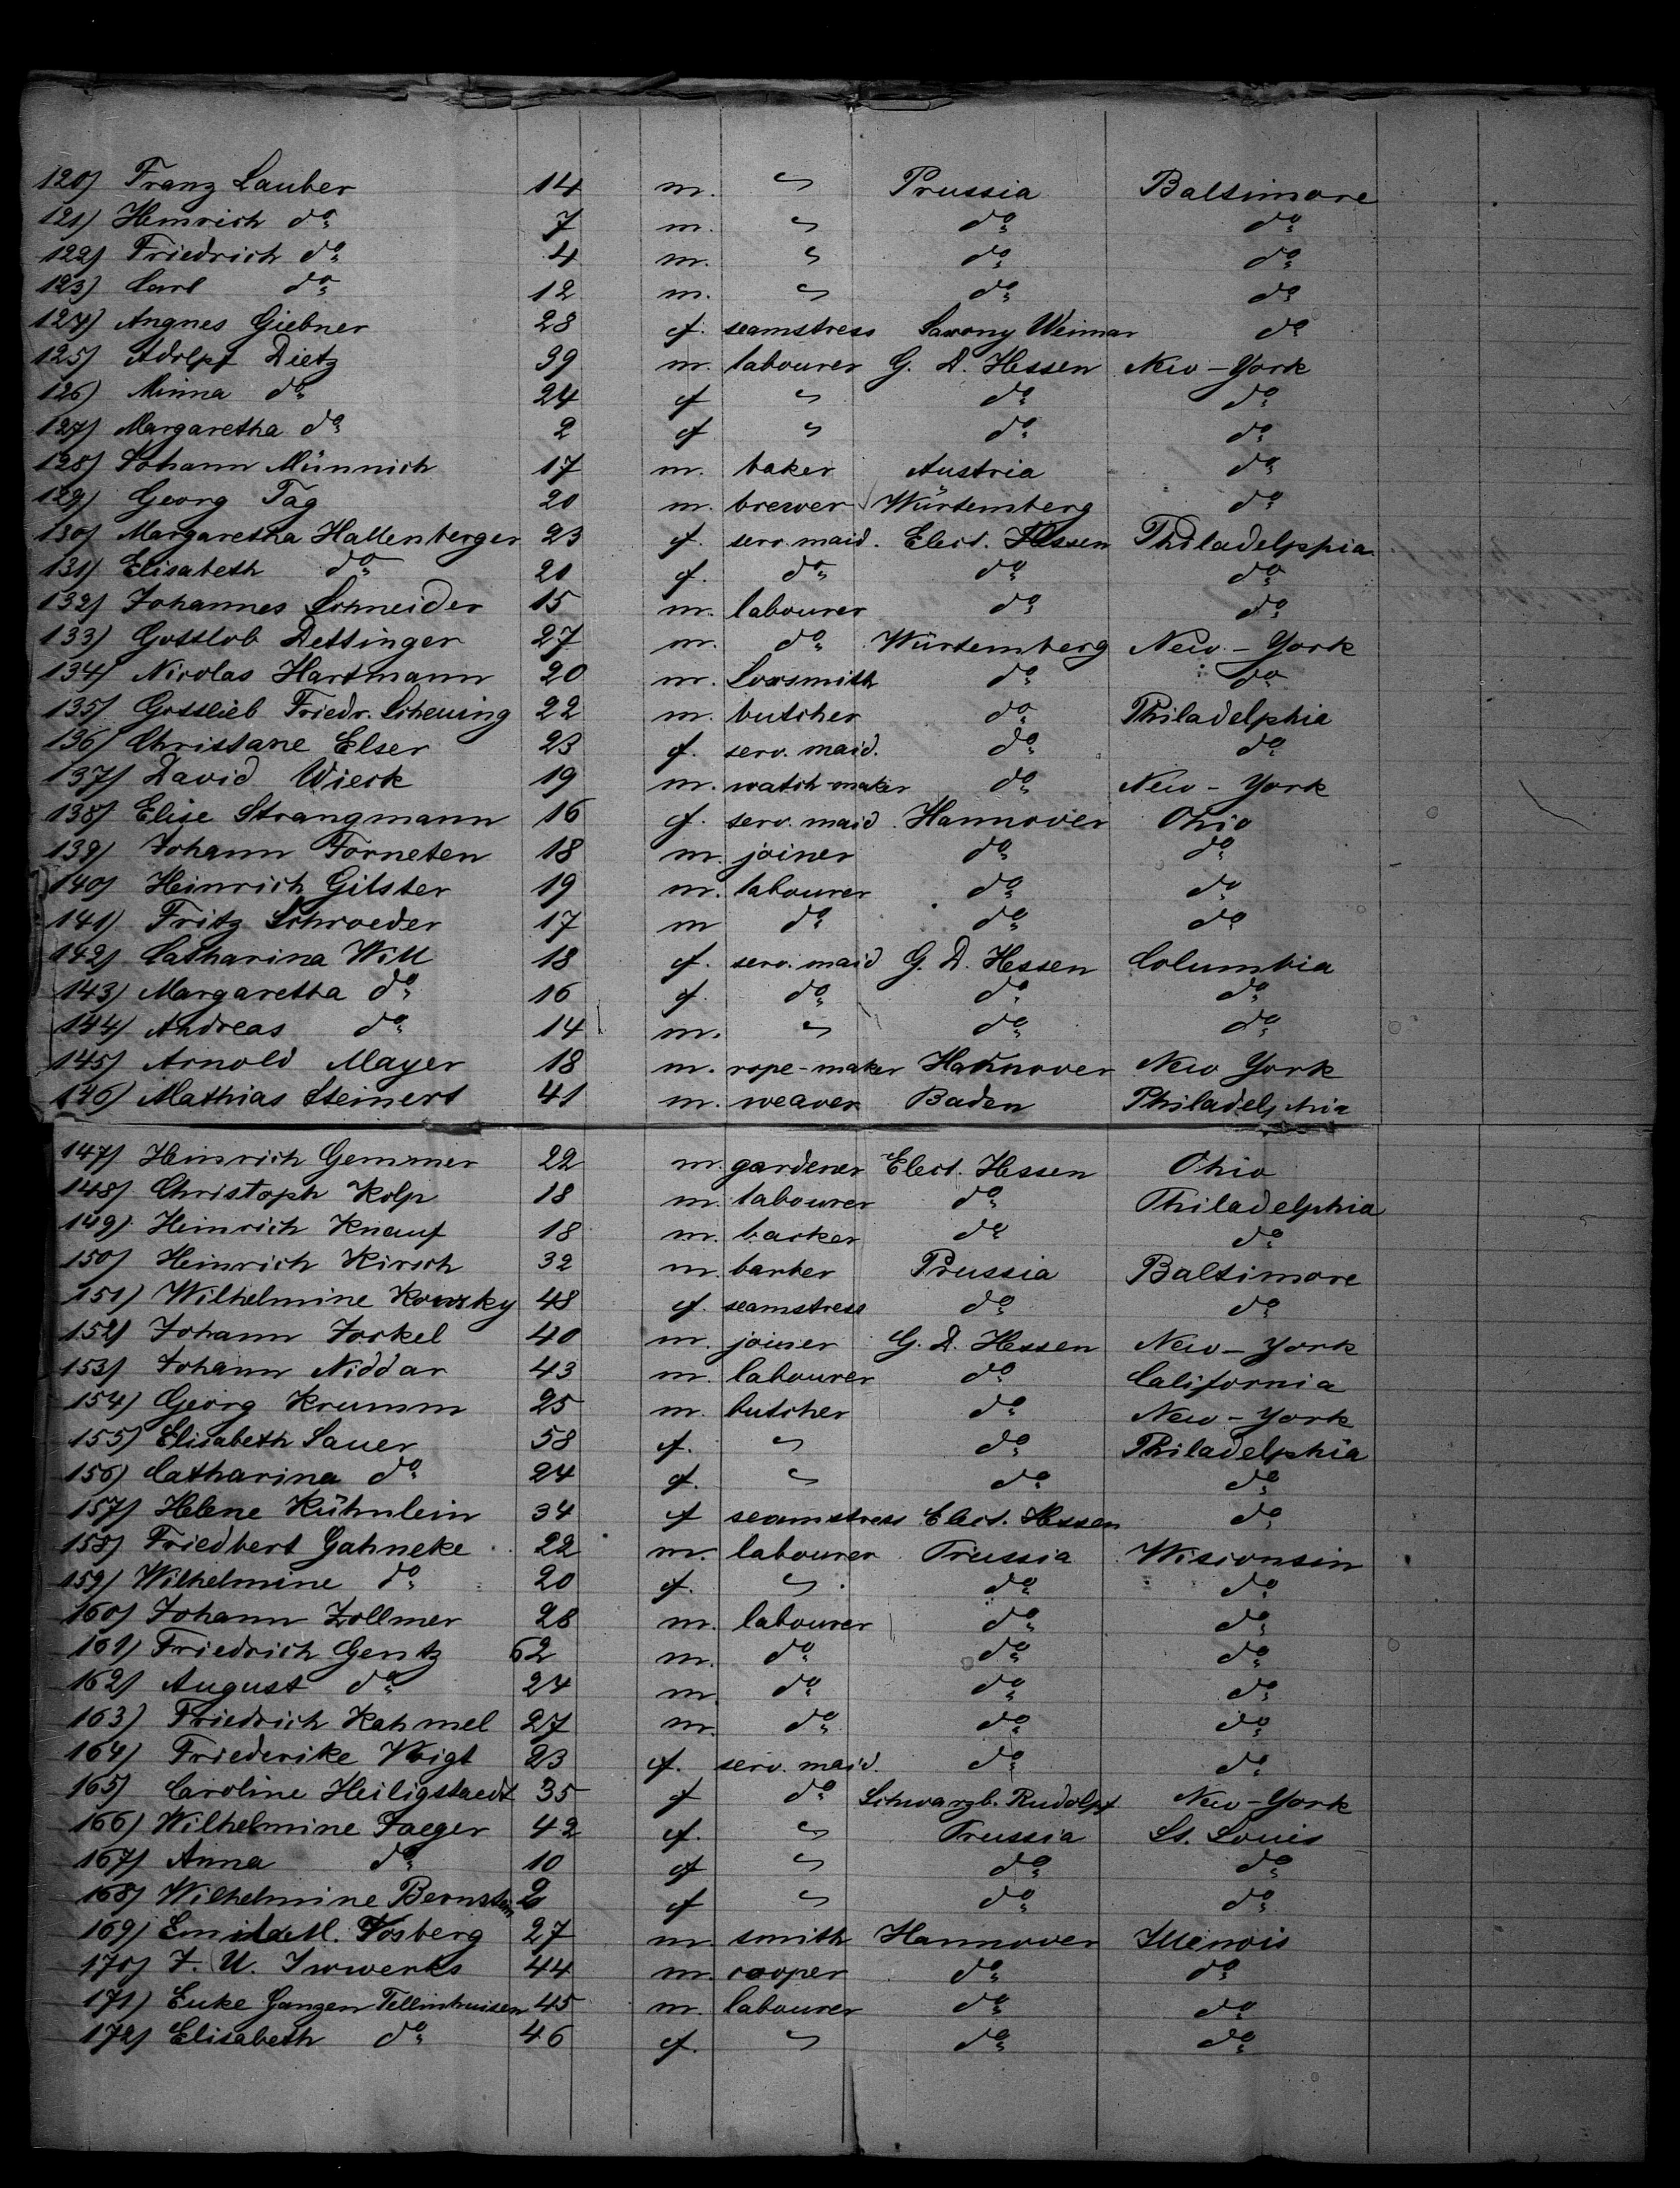 120) Franz Lauber 14 m. " Prussia Baltimore
121) Heinrich do 7 m. " do do
122) Friedrich do 4 m. " do do
123) Carl do 12 m. " do do
124) Angnes Giebner 28 f. seamstress Saxony Weimar do
125) Adolpf Dietz 39 m. labourer G. D. Hessen New-York
126) Minna do 24 f " do do
127) Margaretha do 2 f " do do
128) Johann Münnich 17 m. baker Austria do
129) Georg Tag 20 m. brewer Würtemberg do
130) Margaretha Hallenberger 23 f. serv. maid. Elect. Hessen Philadelphia
131) Elisabeth do 20 f. do do do
132) Johannes Schneider 15 m. labourer do do
133) Gottlob Dettinger 27 m. do Würtemberg New-York
134) Nicolas Hartmann 20 m. Locsmith do do
135) Gottlieb Friedr. Scheuing 22 m. butcher do Philadelphia
136) Christane Elser 23 f. serv. maid. do do
137) David Wieck 19 m. watch-maker do New-York
138) Elise Strangmann 16 f. serv. maid Hannover Ohio
139) Johann Torneten 18 m. joiner do do
140) Heinrich Gilster 19 m. labourer do do
141) Fritz Schroeder 17 m do do do
142) Catharina Will 18 f. serv. maid G. D. Hessen Columbia
143) Margaretha do 16 f. do do do
144) Andreas do 14 m. " do do
145) Arnold Mayer 18 m. rope-maker Hannover New York
146) Mathias Steinert 41 m. weaver Baden Philadelphia
147) Heinrich Gemmer 22 m. gardener Elect. Hessen Ohio
148) Christoph Kolp 18 m. labourer do Philadelphia
149) Heinrich Knauf 18 m. backer do do
150) Heinrich Kirsch 32 m. barber Prussia Baltimore
151) Wilhelmine 48 f. seamstress do do
152) Johann Jockel 40 m. joiner G. D. Hessen New-York
153) Johann Niddar 43 m. labourer do California
154) Georg Krumm 25 m. butcher do New-York
155) Elisabeth Sauer 58 f. " do Philadelphia
156) Catharina do 24 f. " do do
157) Helene Kühnlein 34 f seamstress Elect. Hessen do
158) Friedbert Gahneke 22 m. labourer Prussia Wisconsin
159) Wilhelmine do 20 f. " do do
160) Johann Zollmer 28 m. labourer do do
161) Friedrich Gentz 62 m. do do do
162) August do 24 m. do do do
163) Friedrich Kahmel 27 m. do do do
164) Friederike Voigt 23 f. serv. maid. do do
165) Caroline Heiligstaedt 35 f do Schwarzb. Rudolpf. New-York
166) Wilhelmine Jaeger 42 f. " Prussia St. Louis
167) Anna do 10 f " do do
168) Wilhelmine Bernstein 2 f " do do
169) Vosberg 27 m. smith Hannover Illinois
170) J. U. 44 m. cooper do do
171) Euke Ganzen Tellinhuisen 45 m. labourer do do
172) Elisabeth do 46 f. " do do